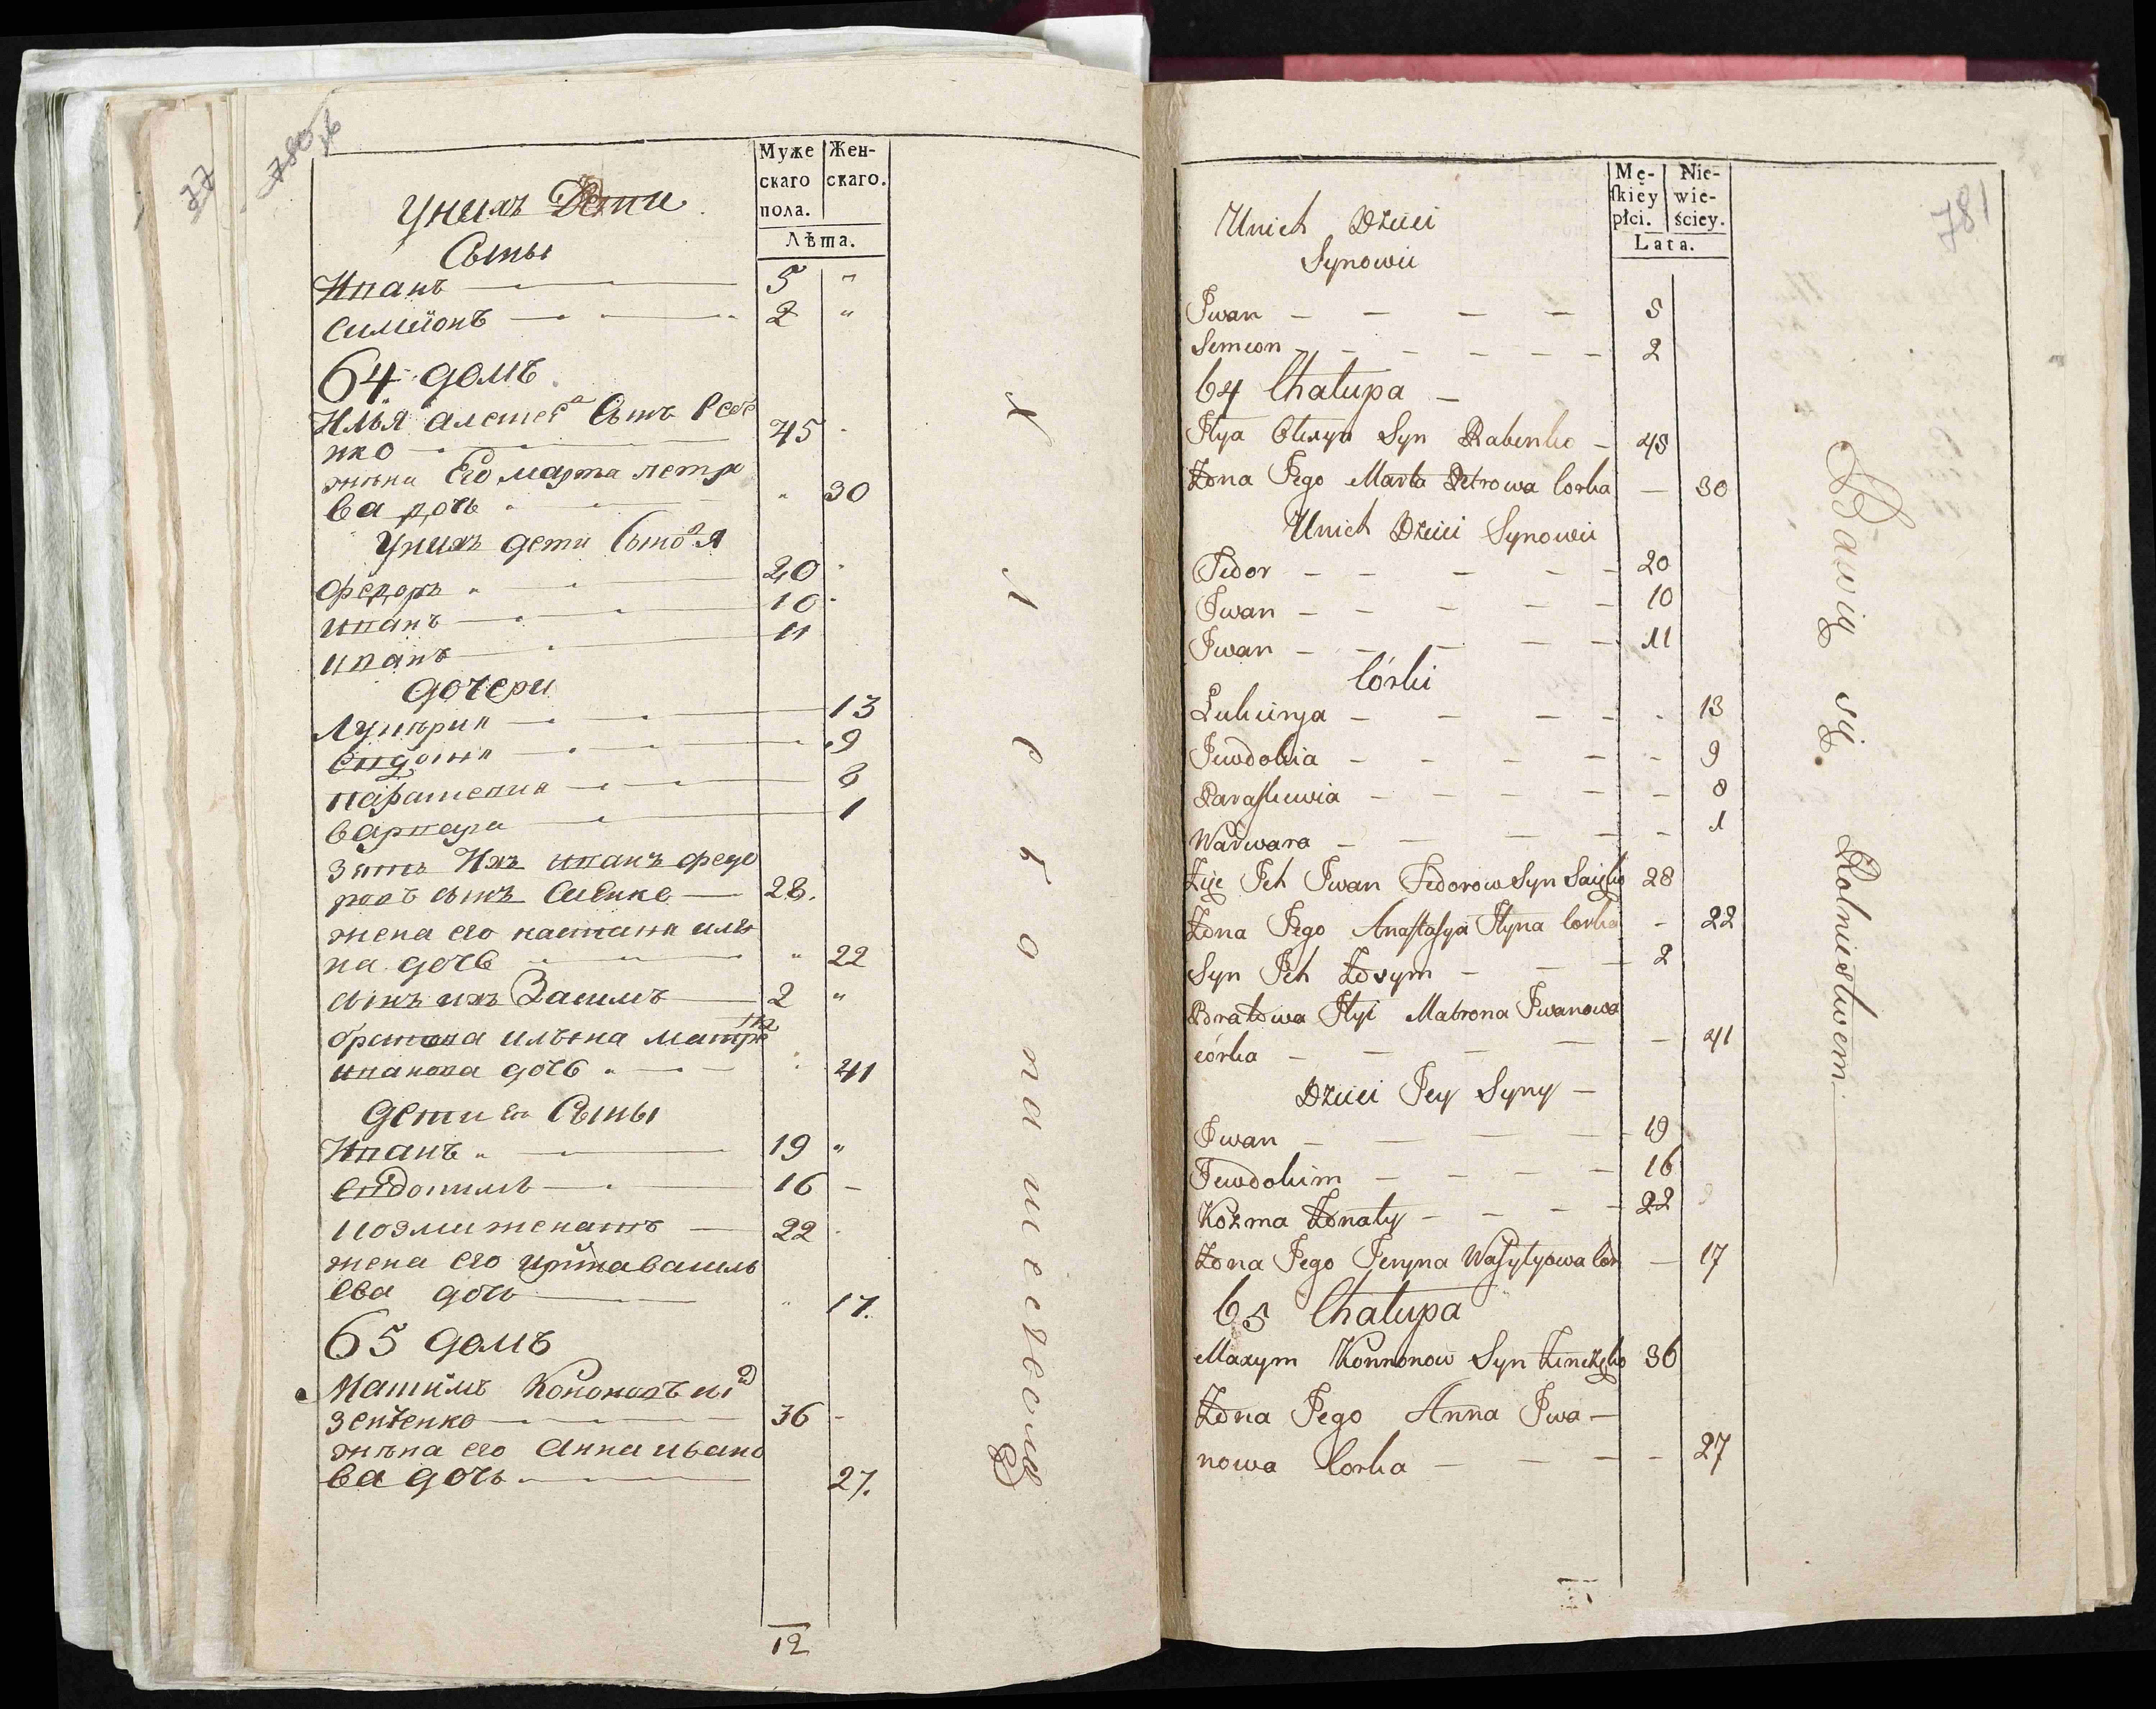 37
780 об
Муже
скаго
пола.
Жен-
скаго.
Лѣта.
Унихъ Дети
Сыны
Иванъ 5 "
Симионъ 2 "
64 домъ
Илья Алексеева Сынъ Рабе
нко 45
жена Его марта петро
ва дочь " 30
Унихъ дети Сыновя
Федоръ 20
иванъ 10
иванъ 11
дочери
Лукирия 13
Евдокия 9
парашевия 8
варвара 1
зять Ихъ иванъ федо
ровъ сынъ Саенко 28.
жена его настасия иль
на дочь " 22
сынъ ихъ Засимъ 2 "
братова ильена матро
на
иванова дочь 41
дети ея Сыны
Иванъ 19 "
евдокимъ 16 –
козма женатъ 22
жена его ирина василь
ева дочь " 17.
65 домъ
Максимъ Кононовъ
зенченко 36 –
жена его Анна ивано
ва дочь 27.
12
Хлебопашествомъ
781
Mę-
skiey
płci.
Nie-
wie-
ściey.
Lata.
Unich Dzieci
Synowie
Jwan 5
Semeon 2
64 Chałupa
Jlya Olexya Syn Rabenko 45
Żona Jego Marta Petrowa Corka 30
Unich Dzieci Synowie
Fedor 20
Jwan 10
Jwan 11
Córki
Łukirya 13
Jewdokia 9
Paraskewia 8
Warwara 1
Zięć Jch Jwan Fedorow Syn Sajeko 28
Żona Jego Anastasya Jlyna Corka 22
Syn Jch Zosym 2
Bratowa Jlyi Matrona Jwanowa
córka 41
Dzieci Jey Syny
Jwan 19
Jewdokim 16
Kozma Żonaty 22
Żona Jego Jeryna Wasylyowa Cór 17
65 Chałupa
Maxym Konnonow Syn Zenczeko 36
Żona Jego Anna Jwa-
nowa Corka 27
Bawią się Rolnictwem